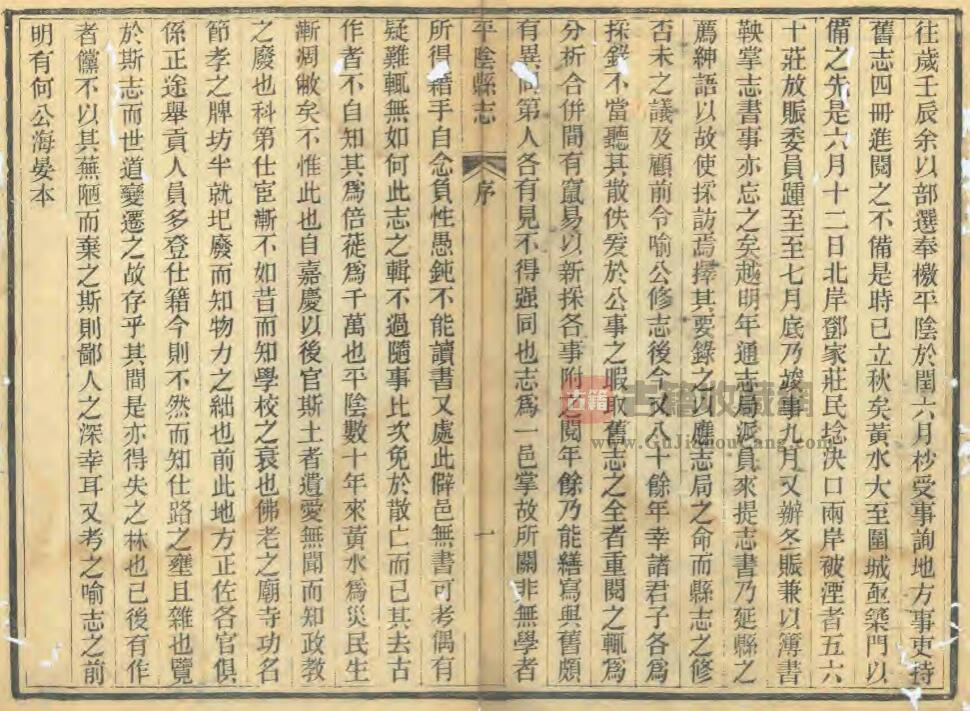 往歲壬辰余以部選奉檄平陰於閏六月杪受事詢地方事吏持
舊志四冊進閱之不備是時已立秋矣黃水大至圍城亟築門以
備之先是六月十二日北岸鄧家莊民埝決口兩岸被湮者五六
十莊放賑委員踵至至七月底乃竣事九月又辦冬賑兼以簿書
鞅掌志書事亦忘之矣越明年通志局派員來提志書乃延縣之
薦紳語以故使採訪焉擇其要錄之以應志局之命而縣志之修
否未之議及顧前令喻公修志後今又八十餘年幸諸君子各為
採錄不當聽其散佚爰於公事之暇取舊志之全者重閱之輒為
分析合併間有竄易以新採各事附之閱年餘乃能繕寫與舊頗
有異同第人各有見不得强同也志為一邑掌故所關非無學者
平陰縣志 序 一
所得藉手自念負性愚鈍不能讀書又處此僻邑無書可考偶有
疑難輒無如何此志之輯不過隨事比次免於散亡而已其去古
作者不自知其為倍蓰為千萬也平陰數十年來黃水為災民生
漸凋敝矣不惟此也自嘉慶以後官斯土者遺愛無聞而知政教
之廢也科第仕宦漸不如昔而知學校之衰也佛老之廟寺功名
節孝之牌坊半就圮廢而知物力之絀也前此地方正佐各官俱
係正途舉貢人員多登仕籍今則不然而知仕路之壅且雜也覽
於斯志而世道變遷之故存乎其間是亦得失之林也已後有作
者儻不以其蕪陋而棄之斯則鄙人之深幸耳又考之喻志之前
明有何公海晏本
古籍
古籍收藏網
www.GuJiShouCang.com